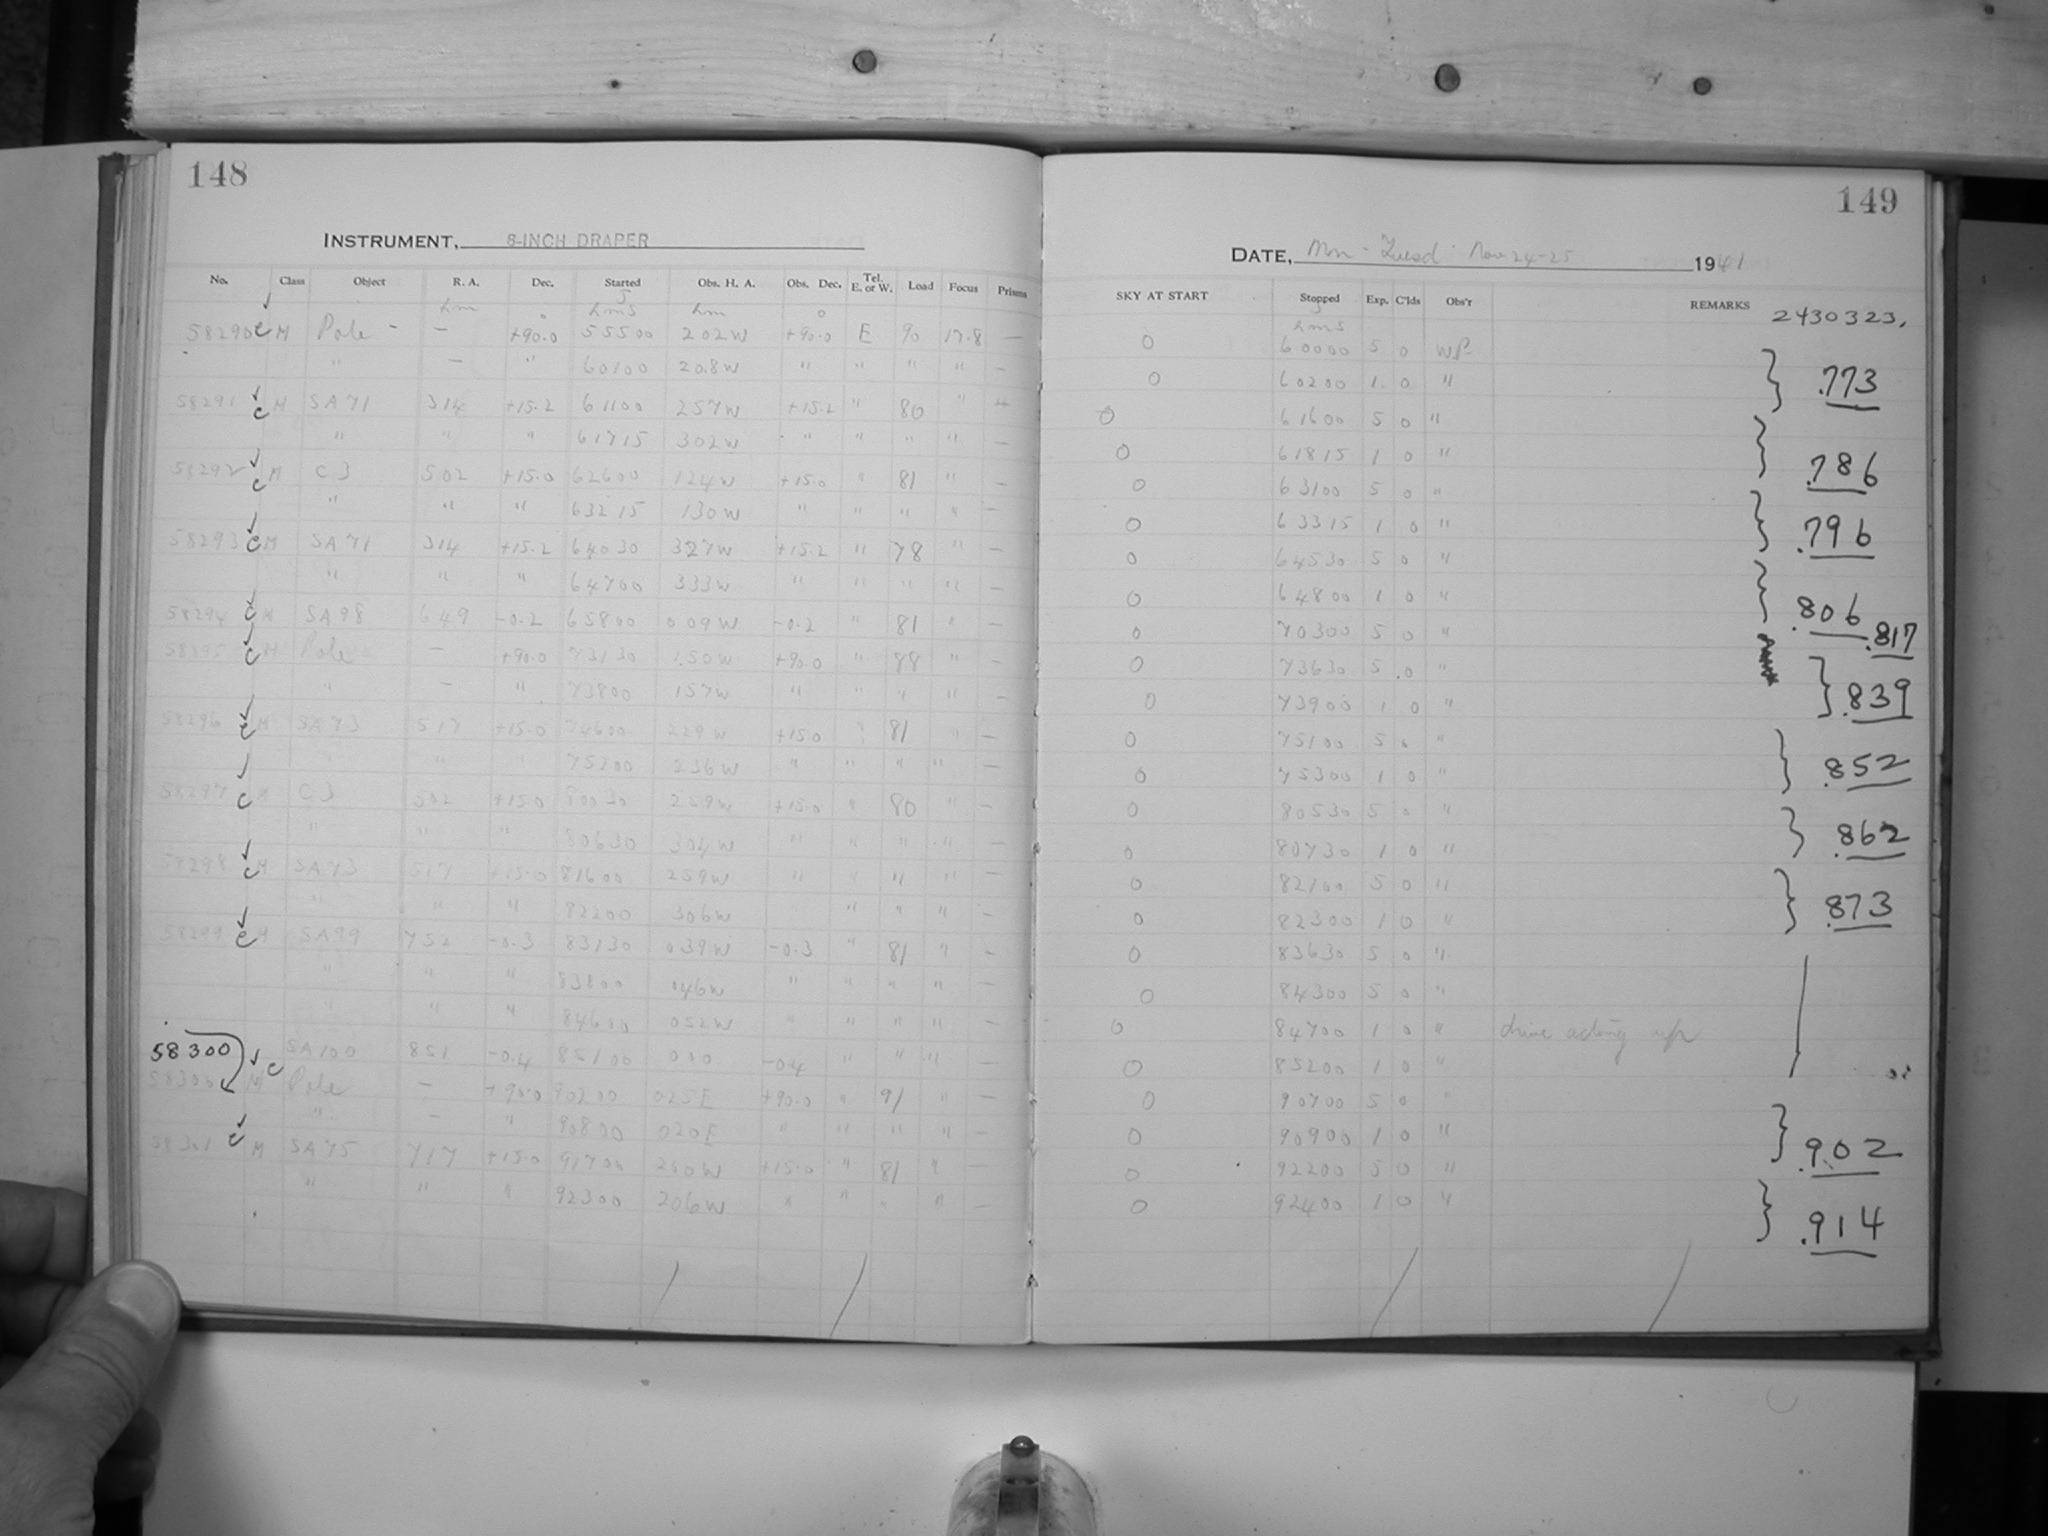 148
INSTRUMENT, 8-INCH DRAPER
No. Class Object R. A. Dec. Started Obs. H. A. Obs. Dec. Tel. E. or W. Load Focus Prisms
hm ° hms hm °
58290 c M Pole - — +90.0 55500 202W +90.0 E 90 17.8 —
" — " 60100 208W " " " " —
58291 c M SA71 314 +15.2 61100 257W +15.2 " 80 "
" " " 61715 302W " " " " —
58292 c M C3 502 +15.0 62600 124W +15.0 " 81 " —
" " " 63215 130W " " " " —
58293 c M SA71 314 +15.2 64030 327W +15.2 " 78 " —
" " " 64700 333W " " " " —
58294 c M SA98 649 -0.2 65800 009W -0.2 " 81 " —
58295 c M Pole — +90.0 73130 150W +90.0 " 88 " —
" — " 73800 157W " " " " —
58296 c M SA73 517 +15.0 74600 229W +15.0 81 " —
" " " 75200 236W " " " " —
58297 c M C3 502 +15.0 80030 259W +15.0 " 80 " —
" " " 80630 304W " " " " —
58298 c M SA73 517 +15.0 81600 259W " " " " —
" " " 82200 306W " " " —
58299 c M SA99 752 -0.3 83130 039W -0.3 " 81 " —
" " " 83800 046W " " " " —
" " " 84600 052W " " " " —
58300 c SA100 851 -0.4 85100 000 -0.4 " " " —
58300 M Pole — +90.0 90200 025E +90.0 " 91 " —
" — " 90800 020E " " " " —
58301 c M SA75 717 +15.0 91700 200W +15.0 " 81 " —
" " " 92300 206W " " " " —
149
DATE, Mon - Tuesd Nov 24-25 1941
SKY AT START Stopped Exp. C'lds Obs'r REMARKS
hms 2430323.
0 60000 5 0 WP
0 60200 1 0 " .773
0 61600 5 0 "
0 61815 1 0 " .786
0 63100 5 0 "
0 63315 1 0 " .796
0 64530 5 0 "
0 64800 1 0 " .806
0 70300 5 0 " .817
0 73630 5 0 "
0 73900 1 0 " .839
0 75100 5 0 "
0 75300 1 0 " .852
0 80530 5 0 "
0 80730 1 0 " .862
0 82100 5 0 "
0 82300 1 0 " .873
0 83630 5 0 "
0 84300 5 0 "
0 84700 1 0 " drive acting up
0 85200 1 0 "
0 90700 5 0 "
0 90900 1 0 " .902
0 92200 5 0 "
0 92400 1 0 " .914